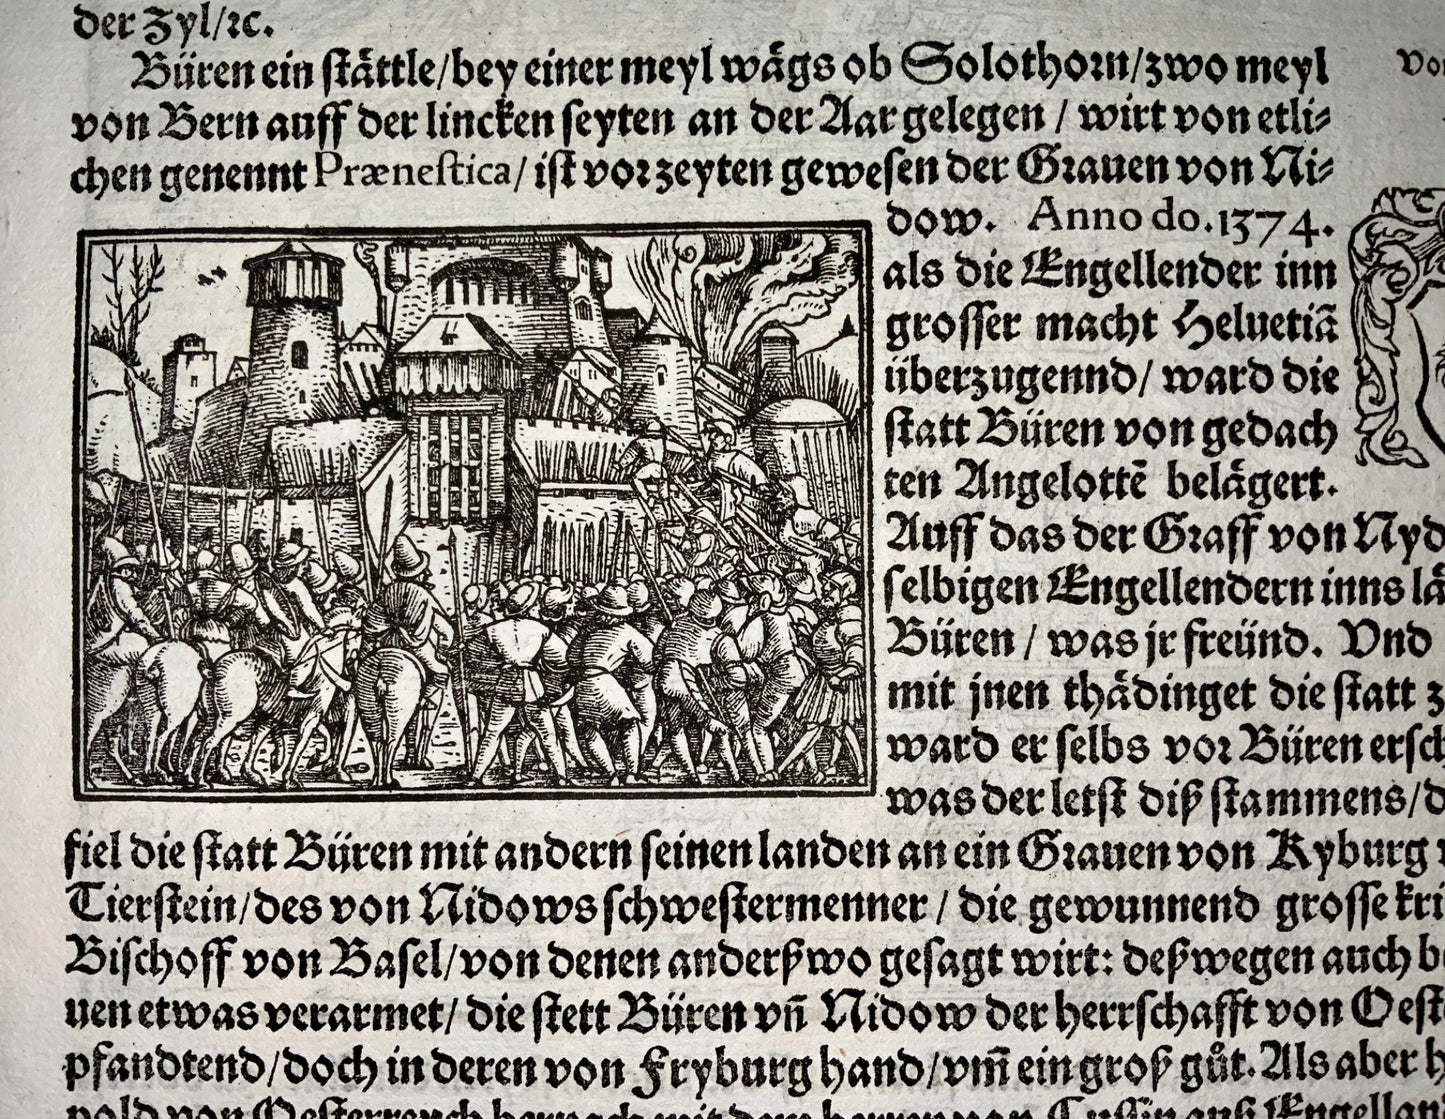 der Zyl/ꝛc.
Büren ein stättle/bey einer meyl wägs ob Solothorn/zwo meyl
von Bern auff der lincken seyten an der Aar gelegen / wirt von etli⸗
chen genennt Prænestica/ ist vorzeyten gewesen der Grauen von Ni⸗
dow. Anno do.1374.
als die Engellender inn
grosser macht Heluetiā
überzugennd/ ward die
statt Büren von gedach
ten Angelottē belägert.
Auff das der Graff von Nyd
selbigen Engellendern inns lä
Büren / was jr freünd. Vnd
mit jnen thädinget die statt z
ward er selbs vor Büren ersch
was der letst diß stammens/d
fiel die statt Büren mit andern seinen landen an ein Grauen von Kyburg
Tierstein/des von Nidows schwestermenner / die gewunnend grosse kri
Bischoff von Basel/von denen anderßwo gesagt wirt: deßwegen auch b
uen etwas verarmet/ die stett Büren vñ Nidow der herrschafft von Oest
pfandtend/doch in deren von Fryburg hand/vm̄ ein groß gůt. Als aber h
pold von Oesterreych hernach mit dem herren von Cussin auß Engellan
Vo